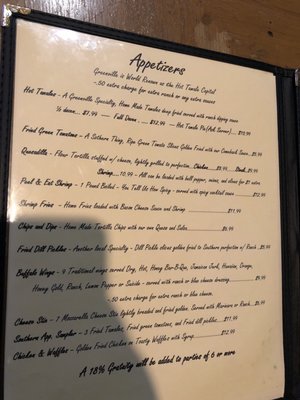 Appetizers
Greenville is World Renown as the Hot Tamale Capital
.50 extra charge for extra ranch or any extra sauces
Hot Tamales - A Greenville Specialty, Home Made Tamales deep fried served with ranch dipping sauce
½ dozen... $7.99 — Full Dozen .... $12.99 — Hot Tamale Po(Awk Server)....$10.99
Fried Green Tomatoes - A Southern Thing, Ripe Green Tomato Slices Golden Fried with our Comeback Sauce...$8.99
Quesadilla - Flour Tortilla stuffed w/ cheese, lightly grilled to perfection...Chicken... Steak...
Shrimp...10.99 - All can be loaded with bell pepper, onions, and cheese for $1 extra
Peel & Eat Shrimp - 1 Pound Boiled - You Tell Us How Spicy - served with spicy cocktail sauce ......$12.99
Shrimp Fries - Home Fries loaded with Bacon Cheese Sauce and Shrimp ............$11.99
Chips and Dips - Home Made Tortilla Chips with our own Queso and Salsa...............
Fried Dill Pickles - Another local Specialty - Dill Pickle slices golden fried to Southern perfection w/ Ranch...
Buffalo Wings - 9 Traditional wings served Dry, Hot, Honey Bar-B-Que, Jamaican Jerk, Hawaiian, Orange,
Honey Gold, Ranch, Lemon Pepper or Suicide - served with ranch or blue cheese dressing.........
.50 extra charge for extra ranch or blue cheese.
Cheese Stix - 7 Mozzarella Cheese Stix lightly breaded and fried golden. Served with Marinara or Ranch.
Southern App. Sampler - 3 Fried Tamales, Fried green tomatoes, and Fried dill pickles...$11.99
Chicken & Waffles - Golden Fried Chicken on Toasty Waffles with Syrup............$12.99
A 18% Gratuity will be added to parties of 6 or more